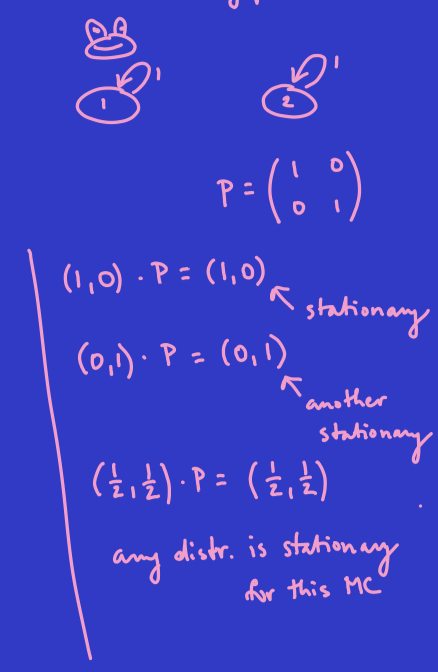 1 1
2 1
P = ( 1 0
0 1 )
(1,0) · P = (1,0)
stationary
(0,1) · P = (0,1)
another
stationary
(1/2, 1/2) · P = (1/2, 1/2)
any distr. is stationary
for this MC